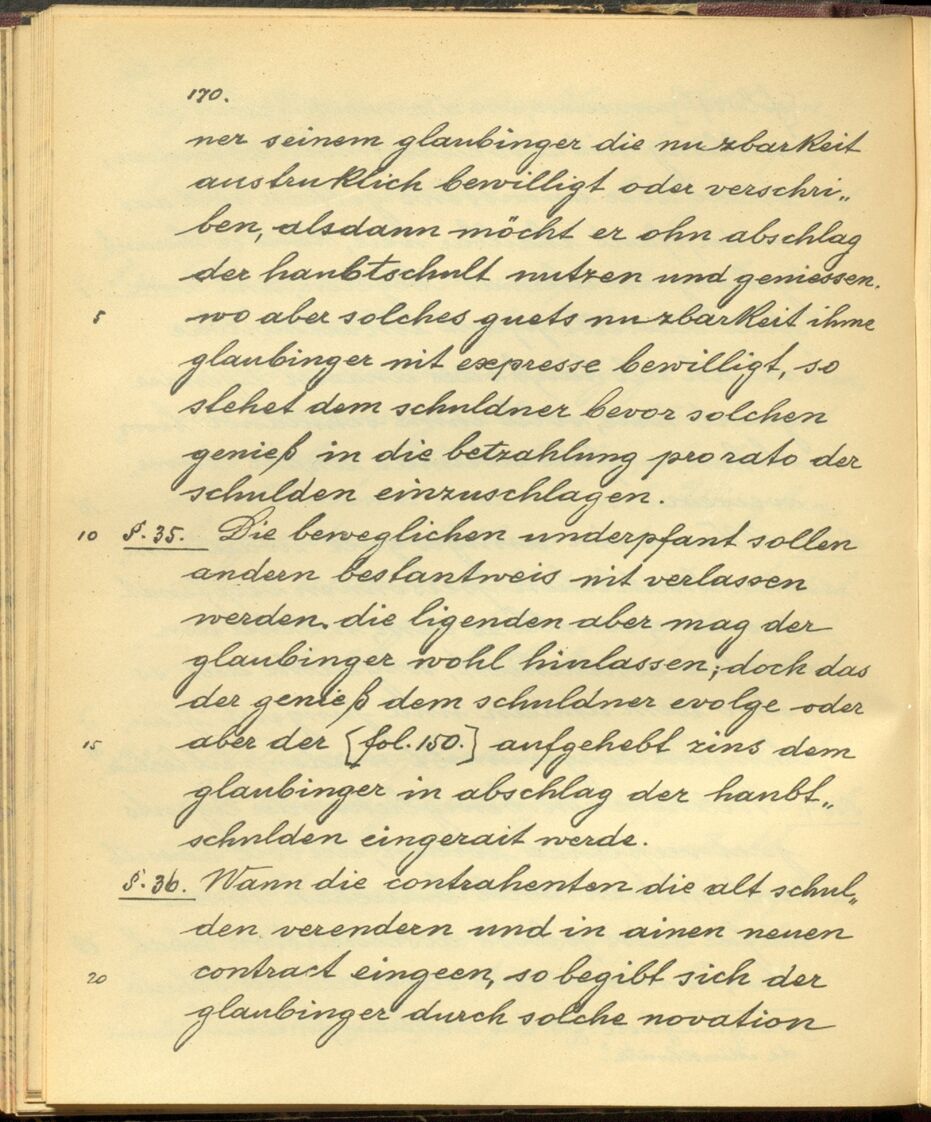 170.
ner seinem glaubinger die nuzbarkeit
austruklich bewilligt oder verschri„
ben, alsdann möcht er ohn abschlag
der haubtschult nutzen und geniessen.
5 wo aber solches guets nuzbarkeit ihme
glaubinger nit expresse bewilligt, so
stehet dem schuldner bevor solchen
genieß in die betzahlung pro rato der
schulden einzuschlagen.
10 §. 35. Die beweglichen underpfant sollen
andern bestantweis nit verlassen
werden. die ligenden aber mag der
glaubinger wohl hinlassen; doch das
der genieß dem schuldner evolge oder
15 aber der [fol. 150.] aufgehebt zins dem
glaubinger in abschlag der haubt„
schulden eingerait werde.
§. 36. Wann die contrahenten die alt schul„
den verendern und in ainen neuen
20 contract eingeen, so begibt sich der
glaubinger durch solche novation